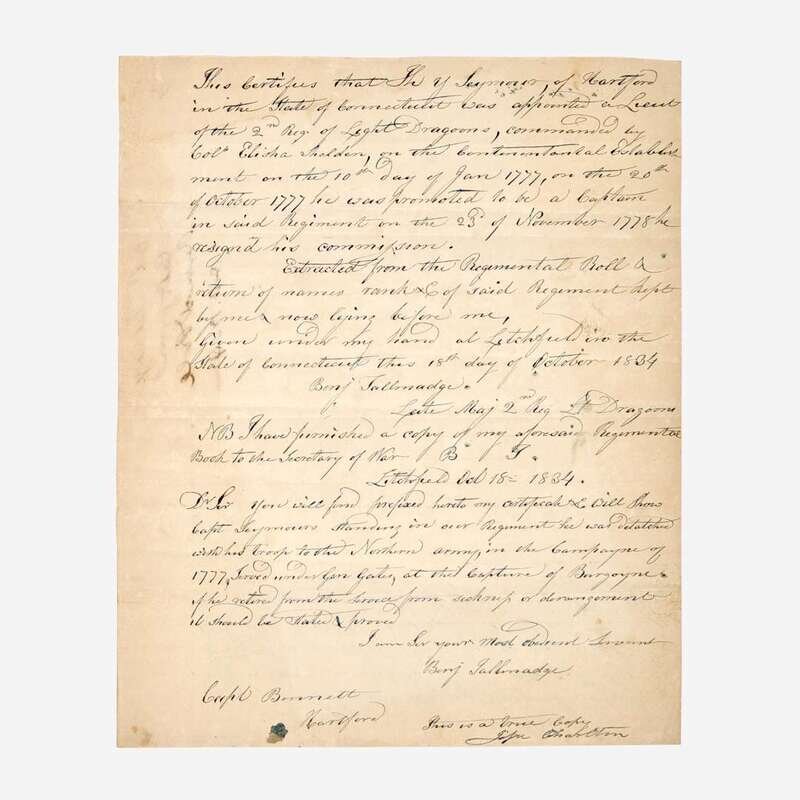 This Certifies that Th Y Seymour, of Hartford
in the State of Connecticut was appointed a Lieut
of the 2nd Reg of Light Dragoons, commanded by
Coln Elisha Sheldon, on the Continentantal Establish
ment on the 10th day of Jan 1777, on the 20th
of October 1777 he was promoted to be a Captain
in said Regiment on the 23d of November 1778 he
resign'd his commission.
Extracted from the Regimental Roll &
return of names rank &C of said Regiment kept
by me & now lying before me,
Given under my hand at Litchfield in the
State of Connecticut this 18th day of October 1834
Benj Tallmadge.
Late Maj 2nd Reg Lt Dragoons
NB I have furnished a copy of my aforesaid Regimental
Book to the Secretary of War B T.
Litchfield Oct 18 = 1834.
Dr Sir You will find prefixed hereto my certificate & will Show
Capt Seymours Standing in our Regiment he was detatched
with his troop to the Northern army, in the Campayne of
1777, Served under Gen Gates, at the Capture of Burgoyne &
if he retired from the Service from sickness or derangement
it should be Stated & proved
I am Sir your most obedient Servant
Benj Tallmadge
Capt Bennett
Hartford
This is a true Copy
Charlton